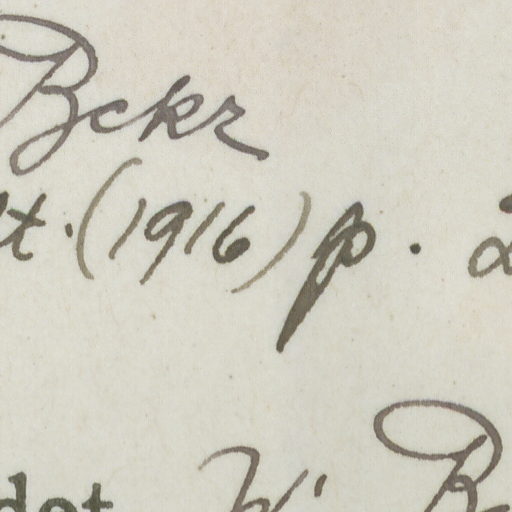 Bckr
t. (1916) p. 2
det W. B